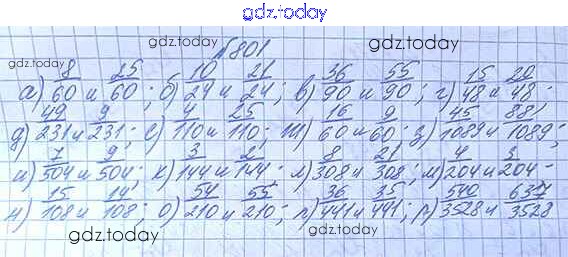 gdz.today
gdz.today №801 gdz.today
а) 8/60 и 25/60; б) 10/24 и 21/24; в) 36/90 и 55/90; г) 15/48 и 20/48.
д) 49/231 и 9/231; е) 4/110 и 25/110; ж) 16/60 и 9/60; з) 45/1089 и 88/1089;
и) 7/504 и 9/504; к) 3/144 и 2/144; л) 8/308 и 21/308; м) 4/204 и 3/204.
н) 15/108 и 14/108; о) 54/210 и 55/210; п) 36/441 и 35/441; р) 540/3528 и 637/3528
gdz.today gdz.today